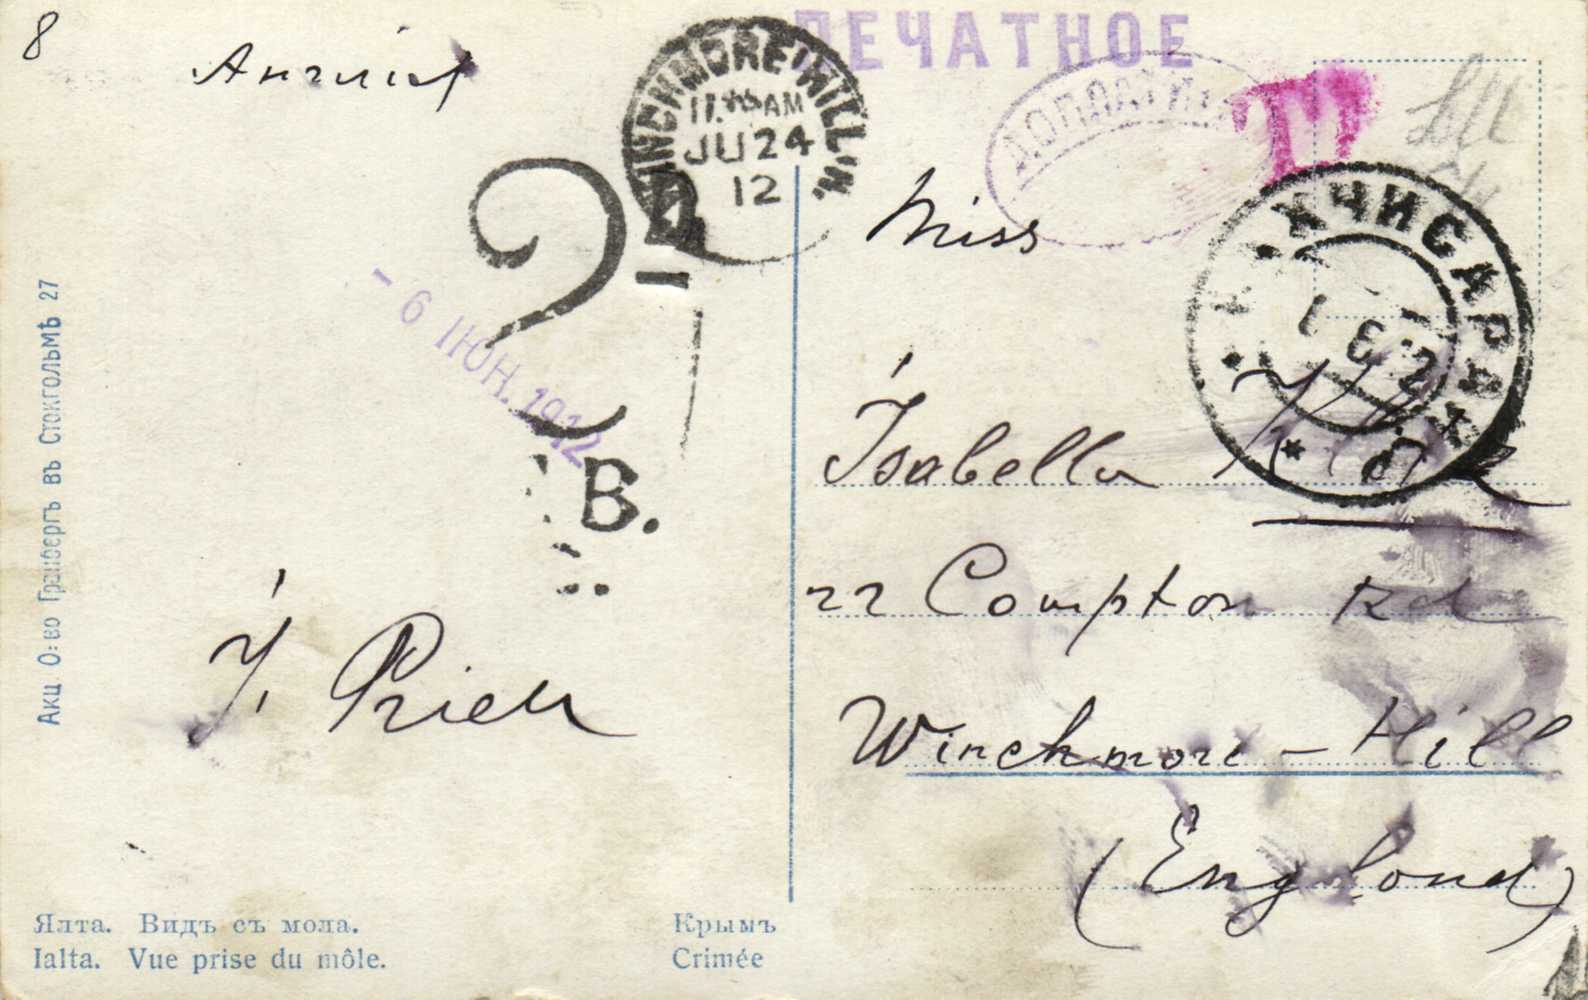 8
Англія
ПЕЧАТНОЕ
ДОПЛАТИТЬ
T
WINCHMORE·HILL·N.
11. AM
JU 24
12
- 6 ІЮН. 1912
2D
I.B.
БАХЧИСАРАЙ
1 6 12
Miss
Isabella
22 Compton Rd
Winchmore - Hill
(England)
Акц. О:во Гранбергъ въ Стокгольмѣ 27
Ялта. Видъ съ мола.
Ialta. Vue prise du môle.
Крымъ
Crimée